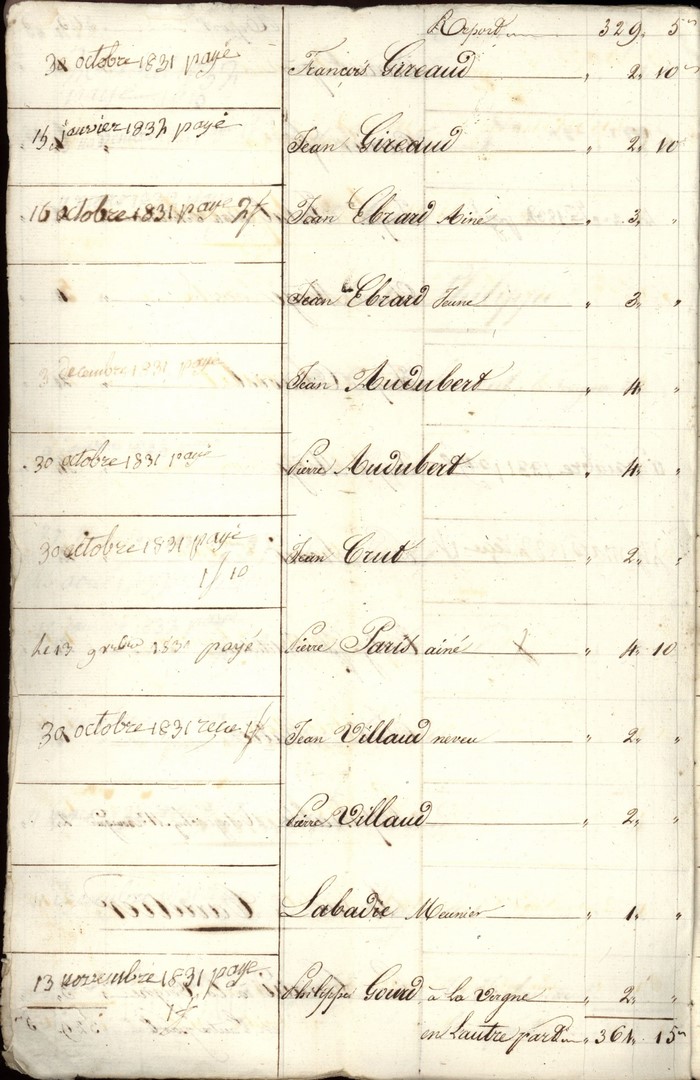 Report 329. 5
30 octobre 1831 payé François Gireaud " 2. 10
15 janvier 1832 payé Jean Gireaud " 2. 10
16 octobre 1831 paye 2f Jean Ebrard Ainé " 3. "
" Jean Ebrard Jeune " 3. "
3 decembre 1831 payé Jean Audubert " 4. "
30 octobre 1831 payé Pierre Audubert " 4. "
30 octobre 1831 payé Jean Crut " 2. "
1f 10
Le 13 9bre 1831 payé Pierre Paris ainé " 4. 10
30 octobre 1831 reçu 1f Jean Villaud neveu " 2. "
Pierre Villaud " 2. "
Labadie Meunier " 1. "
13 novembre 1831 payé Philippe Gourd à la Vergne " 2. "
1f
en Lautre part " 361. 15